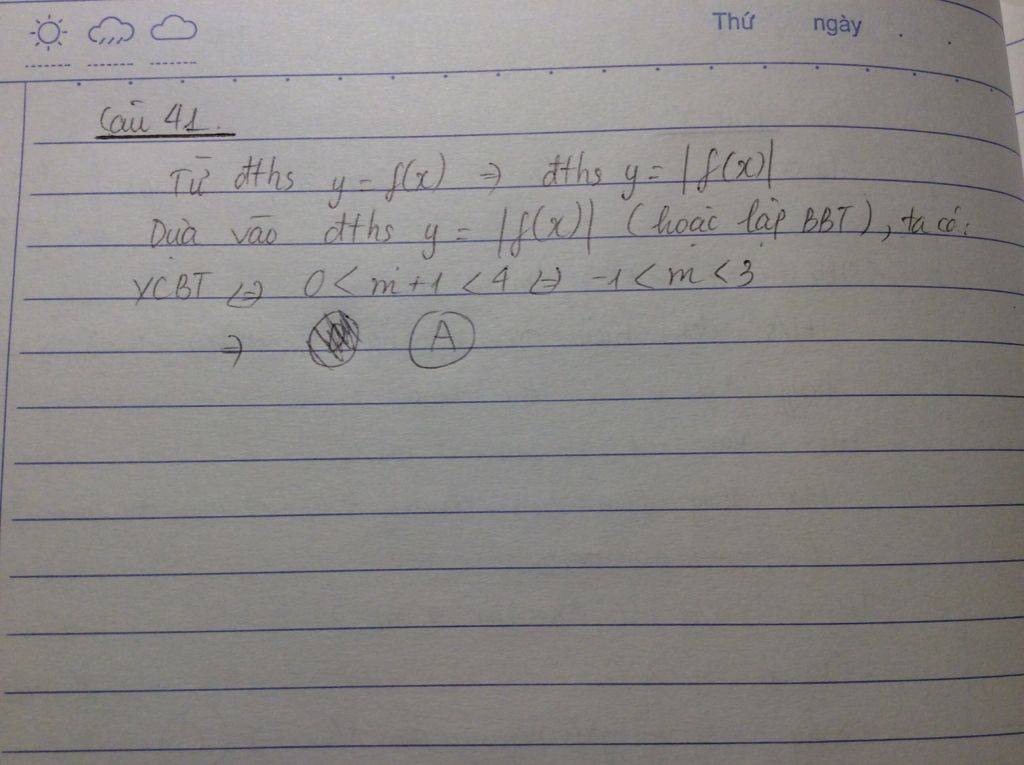 Thứ ngày
Câu 41.
Từ đths y = f(x) ⇒ đths y = |f(x)|
Dựa vào đths y = |f(x)| (hoặc lập BBT), ta có:
YCBT ⇔ 0 < m + 1 < 4 ⇔ -1 < m < 3
⇒ A